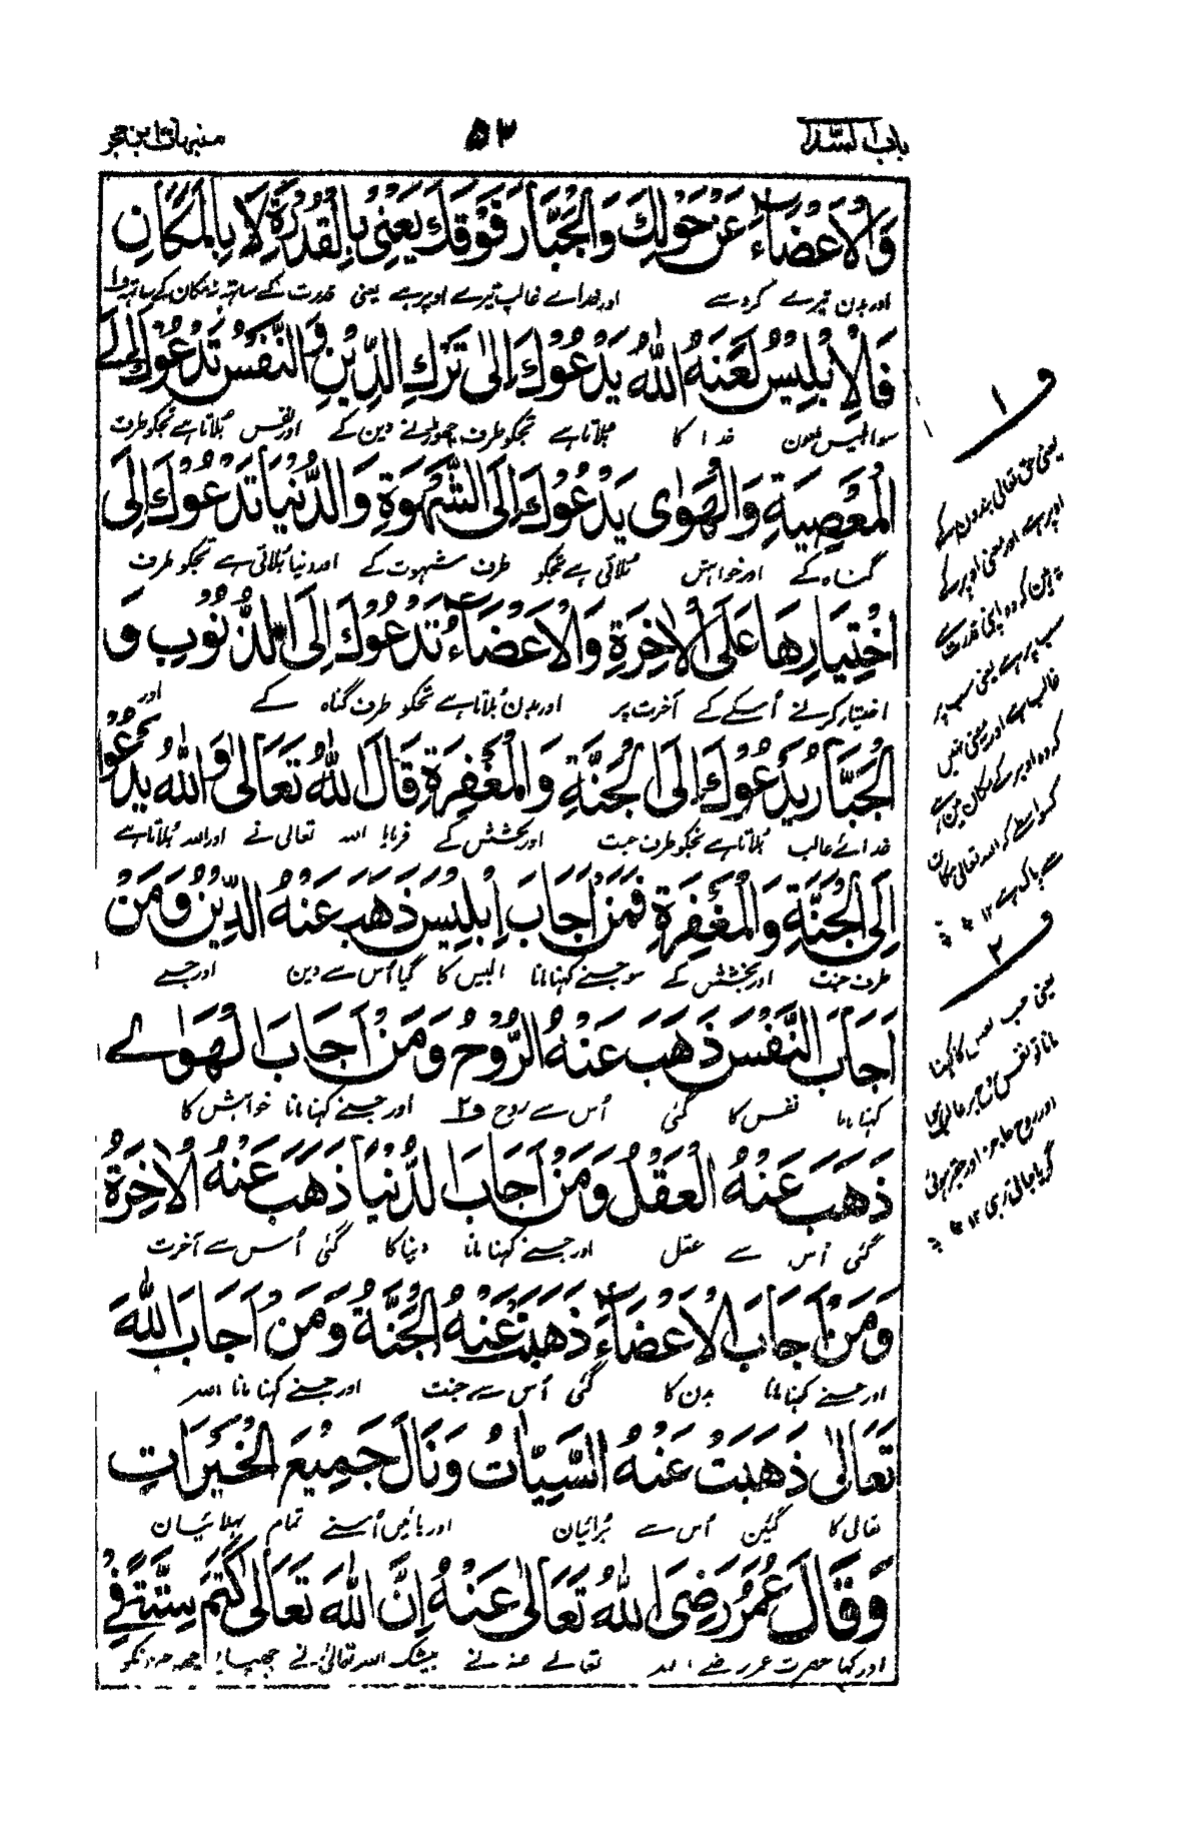 باب السداسی ۵۲ منبہات ابن حجر
وَالْاَعْضَاءُ عَنْ حَوْلِكَ وَالْجَبَّارُ فَوْقَكَ يَعْنِيْ بِالْقُدْرَةِ لَا بِالْمَكَانِ
اور بدن تیرے گرد سے اور خداے غالب تیرے اوپر ہے یعنی قدرت کے ساتھ نہ مکان کے ساتھ ف۱
فَالْاِبْلِيْسُ لَعَنَهُ اللّٰهُ يَدْعُوْكَ اِلٰى تَرْكِ الدِّيْنِ وَالنَّفْسُ تَدْعُوْكَ اِلَى
سو ابلیس ملعون خدا کا بلاتا ہے تجکو طرف چھوڑنے دین کے اور نفس بلاتا ہے تجکو طرف
الْمَعْصِيَةِ وَالْهَوٰى يَدْعُوْكَ اِلَى الشَّهْوَةِ وَالدُّنْيَا تَدْعُوْكَ اِلٰى
گناہ کے اور خواہش بلاتی ہے تجکو طرف شہوت کے اور دنیا بلاتی ہے تجکو طرف
اخْتِيَارِهَا عَلَى الْاٰخِرَةِ وَالْاَعْضَاءُ تَدْعُوْكَ اِلَى الذُّنُوْبِ وَ
اختیار کرنے اُسکے کے آخرت پر اور بدن بلاتا ہے تجکو طرف گناہ کے اور
الْجَبَّارُ يَدْعُوْكَ اِلَى الْجَنَّةِ وَالْمَغْفِرَةِ قَالَ اللّٰهُ تَعَالٰى وَاللّٰهُ يَدْعُوْا
خداے غالب بلاتا ہے تجکو طرف جنت اور بخشش کے فرمایا اللہ تعالی نے اور اللہ بلاتا ہے
اِلَى الْجَنَّةِ وَالْمَغْفِرَةِ فَمَنْ اَجَابَ اِبْلِيْسَ ذَهَبَ عَنْهُ الدِّيْنُ وَمَنْ
طرف جنت اور بخشش کے سو جسنے کہنا مانا ابلیس کا گیا اُس سے دین اور جسے
اَجَابَ النَّفْسَ ذَهَبَ عَنْهُ الرُّوْحُ وَمَنْ اَجَابَ الْهَوٰے
کہنا مانا نفس کا گئی اُس سے روح ف۲ اور جسنے کہنا مانا خواہش کا
ذَهَبَ عَنْهُ الْعَقْلُ وَمَنْ اَجَابَ الدُّنْيَا ذَهَبَ عَنْهُ الْاٰخِرَةُ
گئی اُس سے عقل اور جسنے کہنا مانا دنیا کا گئی اُس سے آخرت
وَمَنْ اَجَابَ الْاَعْضَاءَ ذَهَبَتْ عَنْهُ الْجَنَّةُ وَمَنْ اَجَابَ اللّٰهَ
اور جسنے کہنا مانا بدن کا گئی اُس سے جنت اور جسنے کہنا مانا اللہ
تَعَالٰى ذَهَبَتْ عَنْهُ السَّيِّاٰتُ وَنَالَ جَمِيْعَ الْخَيْرَاتِ
تعالی کا گئین اُس سے برائیان اور پائین اُسنے تمام بھلائیان
وَقَالَ عُمَرُ رَضِىَ اللّٰهُ تَعَالٰى عَنْهُ اِنَّ اللّٰهَ تَعَالٰى كَتَمَ سِتَّةً فِيْ
اور کہا حضرت عمر رضے اللہ تعالے عنہ نے بیشک اللہ تعالی نے چھپایا چھہ چیزونکو
ف ۱
یعنی حق تعالی بندون کے
اوپر ہے اور معنی اوپر کے
یہ ہین کہ وہ اپنی قدرت سے
سب پر ہے یعنی سب پر
غالب ہے اور یہ معنی نہین
کہ وہ اوپر کے مکان مین ہے
کسواسطے کہ اللہ تعالی مکان
سے پاک ہے ۱۲
ف ۲
یعنی جب نفس کا کہنا
مانا تو نفس روح پر غالب ہوا
اور روح عاجز اور حقیر ہوئی
گویا جاتی رہی ۱۲